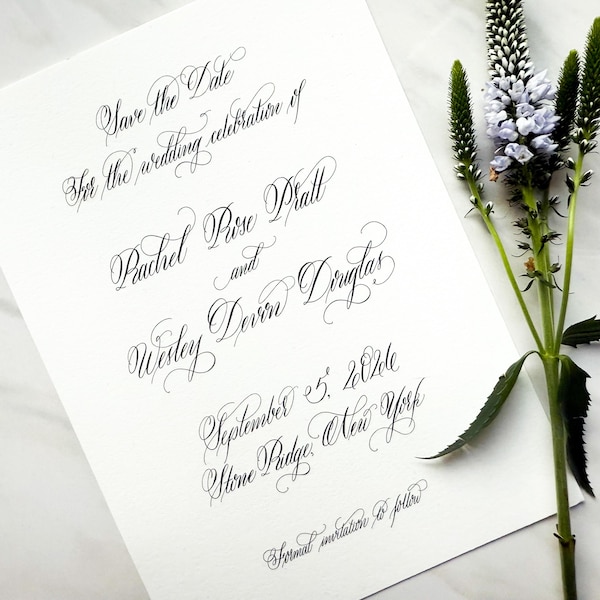 Save the Date
For the wedding celebration of
Rachel Rose Pratt
and
Wesley Devin Douglas
September 5, 2026
Stone Ridge, New York
Formal invitation to follow